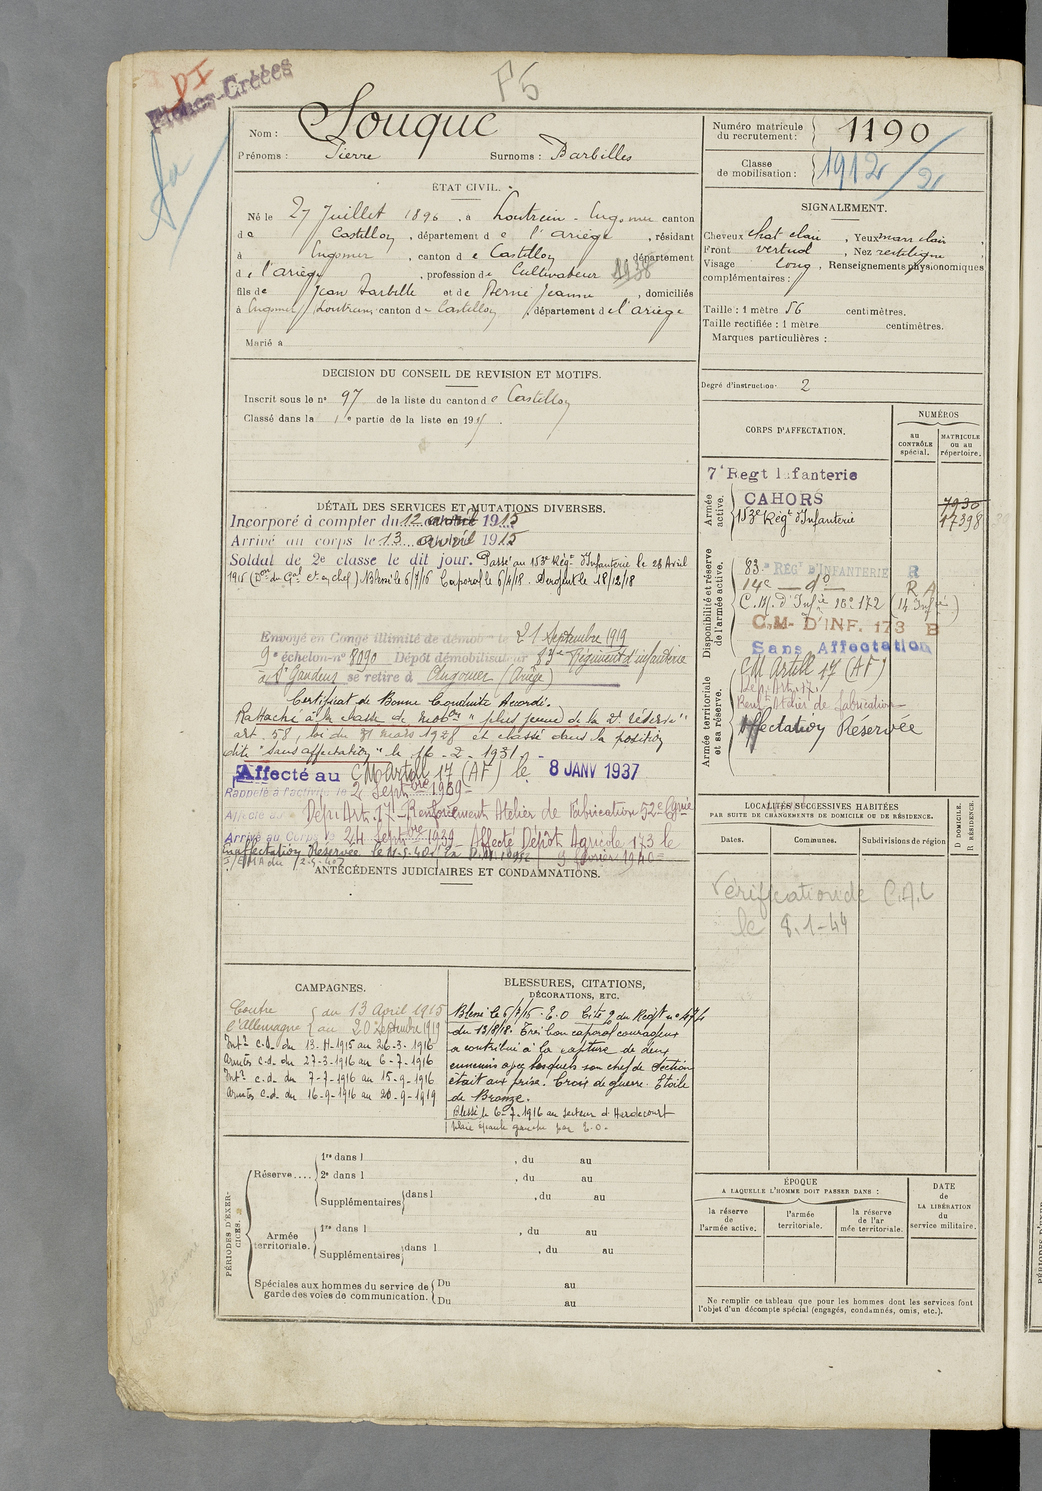 P5
DI
Fiches-Créées
Nom : Souque
Prénoms : Pierre Surnoms : Barbilles
Numéro matricule du recrutement : 1190
Classe de mobilisation : 1912/2
ÉTAT CIVIL.
Né le 27 Juillet 1896, à Loutrein-Engomer canton
de Castillon, département de l'Ariège, résidant
à Engomer, canton de Castillon, département
de l'Ariège, profession de Cultivateur 1938
fils de Jean Barbille et de Berné Jeanne, domiciliés
à Engomer, canton de Castillon, département de l'Ariège
Marié à
SIGNALEMENT.
Cheveux chat clair, Yeux marr clair,
Front vertical, Nez rectiligne,
Visage long, Renseignements physionomiques
complémentaires :
Taille : 1 mètre 56 centimètres.
Taille rectifiée : 1 mètre centimètres.
Marques particulières :
DÉCISION DU CONSEIL DE REVISION ET MOTIFS.
Inscrit sous le n° 97 de la liste du canton de Castillon
Classé dans la 1e partie de la liste en 19
Degré d'instruction : 2
DÉTAIL DES SERVICES ET MUTATIONS DIVERSES.
Incorporé à compter du 12 avril 1915
Arrivé au corps le 13 avril 1915
Soldat de 2e classe le dit jour. Passé au 153e Régt Infanterie le 28 Avril
1916 (Don du Gal Ct en chef) Blessé le 6/7/16 Caporal le 6/4/18. Sergent le 18/12/18
Envoyé en Congé illimité de démobon le 21 Septembre 1919
9e échelon-n° 8090 Dépôt démobilisateur 83e Régiment d'infanterie
à St Gaudens se retire à Engomer (Ariège)
Certificat de Bonne Conduite Accordé.
Rattaché à la classe de mobon "plus jeune de la 2e réserve"
art. 58, loi du 31 mars 1928 et classé dans la position
dite "sans affectation" le 16-2-1931
Affecté au CM Artil 17 (AF) le 8 JANV 1937
Rappelé à l'activité le 2 Septbre 1939
Affecté au Dépt Art. 17 Renforcement Atelier de Fabrication 52e Cgnie
Arrivé au Corps le 24 Septbre 1939 Affecté Dépôt Agricole 173 le
9 février 1940
ANTÉCÉDENTS JUDICIAIRES ET CONDAMNATIONS.
CORPS D'AFFECTATION.
NUMÉROS
au CONTRÔLE spécial.
MATRICULE ou au répertoire.
Armée active.
7e Regt Infanterie
CAHORS 7930
153e Régt d'Infanterie 17398
Disponibilité et réserve de l'armée active.
83e RÉGt D'INFANTERIE R
14e — do — R A
C.M. d'Infie 16e 172 (14 Infie)
C.M- D'INF. 173 B
Sans Affectation
Armée territoriale et sa réserve.
CM Artill 17 (AF)
Dép. Art. 17
Renft Atelier de fabrication
Affectation Réservée
LOCALITÉS SUCCESSIVES HABITÉES
PAR SUITE DE CHANGEMENTS DE DOMICILE OU DE RÉSIDENCE.
Dates. Communes. Subdivisions de région
D DOMICILE.
R RÉSIDENCE.
Vérification de C.A.L
le 8-1-44
CAMPAGNES.
Contre du 13 April 1915
l'Allemagne au 20 Septembre 1919
Intr c.d. du 13-4-1915 au 26-3-1916
Armées c.d. du 27-3-1916 au 6-7-1916
Intr c.d. du 7-7-1916 au 15-9-1916
Armées c.d. du 16-9-1916 au 20-9-1919
BLESSURES, CITATIONS,
DÉCORATIONS, ETC.
Blessé le 6/7/16 - E.O Cité O. du Régt n° 474
du 13/8/18. Très bon caporal courageux
a contribué à la capture de deux
ennemis après lesquels son chef de Section
était aux prise. Croix de guerre. Étoile
de Bronze.
Blessé le 6-7-1916 au secteur d'Hardecourt
plaie épaule gauche par E.O.
PÉRIODES D'EXERCICES.
Réserve....
1re dans l , du au
2e dans l , du au
Supplémentaires dans l , du au
Armée territoriale.
1re dans l , du au
Supplémentaires dans l , du au
Spéciales aux hommes du service de garde des voies de communication.
Du au
Du au
ÉPOQUE
A LAQUELLE L'HOMME DOIT PASSER DANS :
la réserve de l'armée active.
l'armée territoriale.
la réserve de l'armée territoriale.
DATE de LA LIBÉRATION du service militaire.
Ne remplir ce tableau que pour les hommes dont les services font
l'objet d'un décompte spécial (engagés, condamnés, omis, etc.).